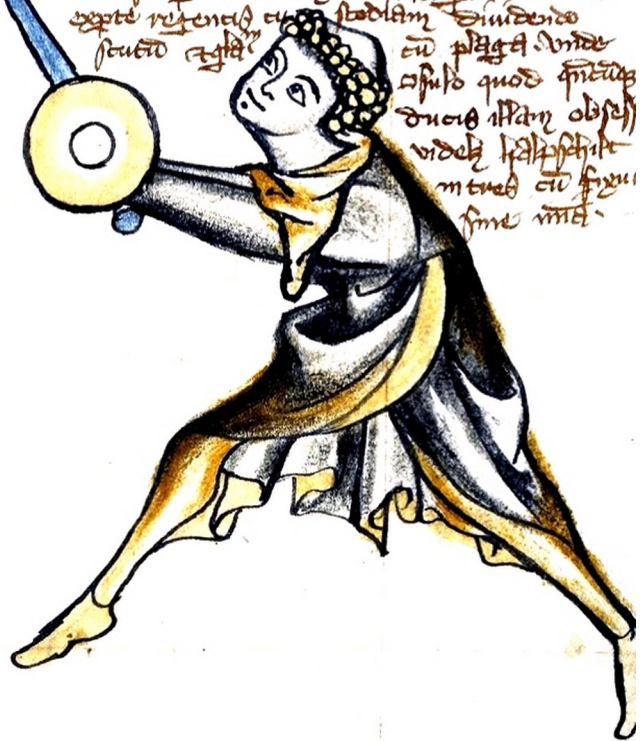 expte regentis cu stodiam diuidendo
scutū cū plaga. Vnde
ꝯsulo quod
ducis illam obsess
videlꝫ halpschilt
intres cū fixu
sine